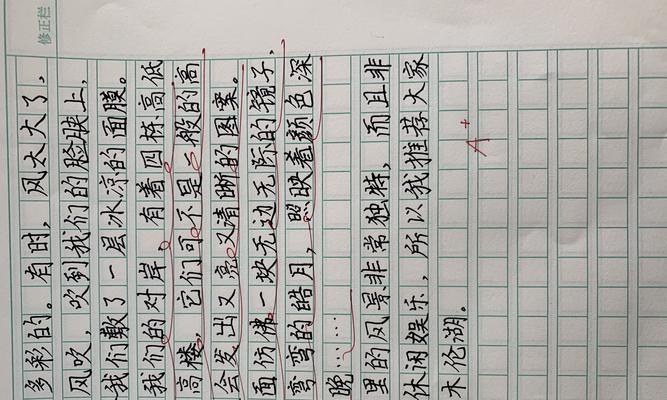 修正栏
多彩的。有时，风太大了，
风吹，吹到我们的脸颊上，
我们敷了一层冰凉的面膜。
我们的对岸，有着四栋高低
高楼，它们可不是一般的高
会发出又亮又清晰的图案。
面仿佛一块无边无际的镜子，
弯弯的皓月，照映着颜色深
晚……
里的风景非常独特，而且非
休闲娱乐，所以我推荐大家
木伦湖。
A+